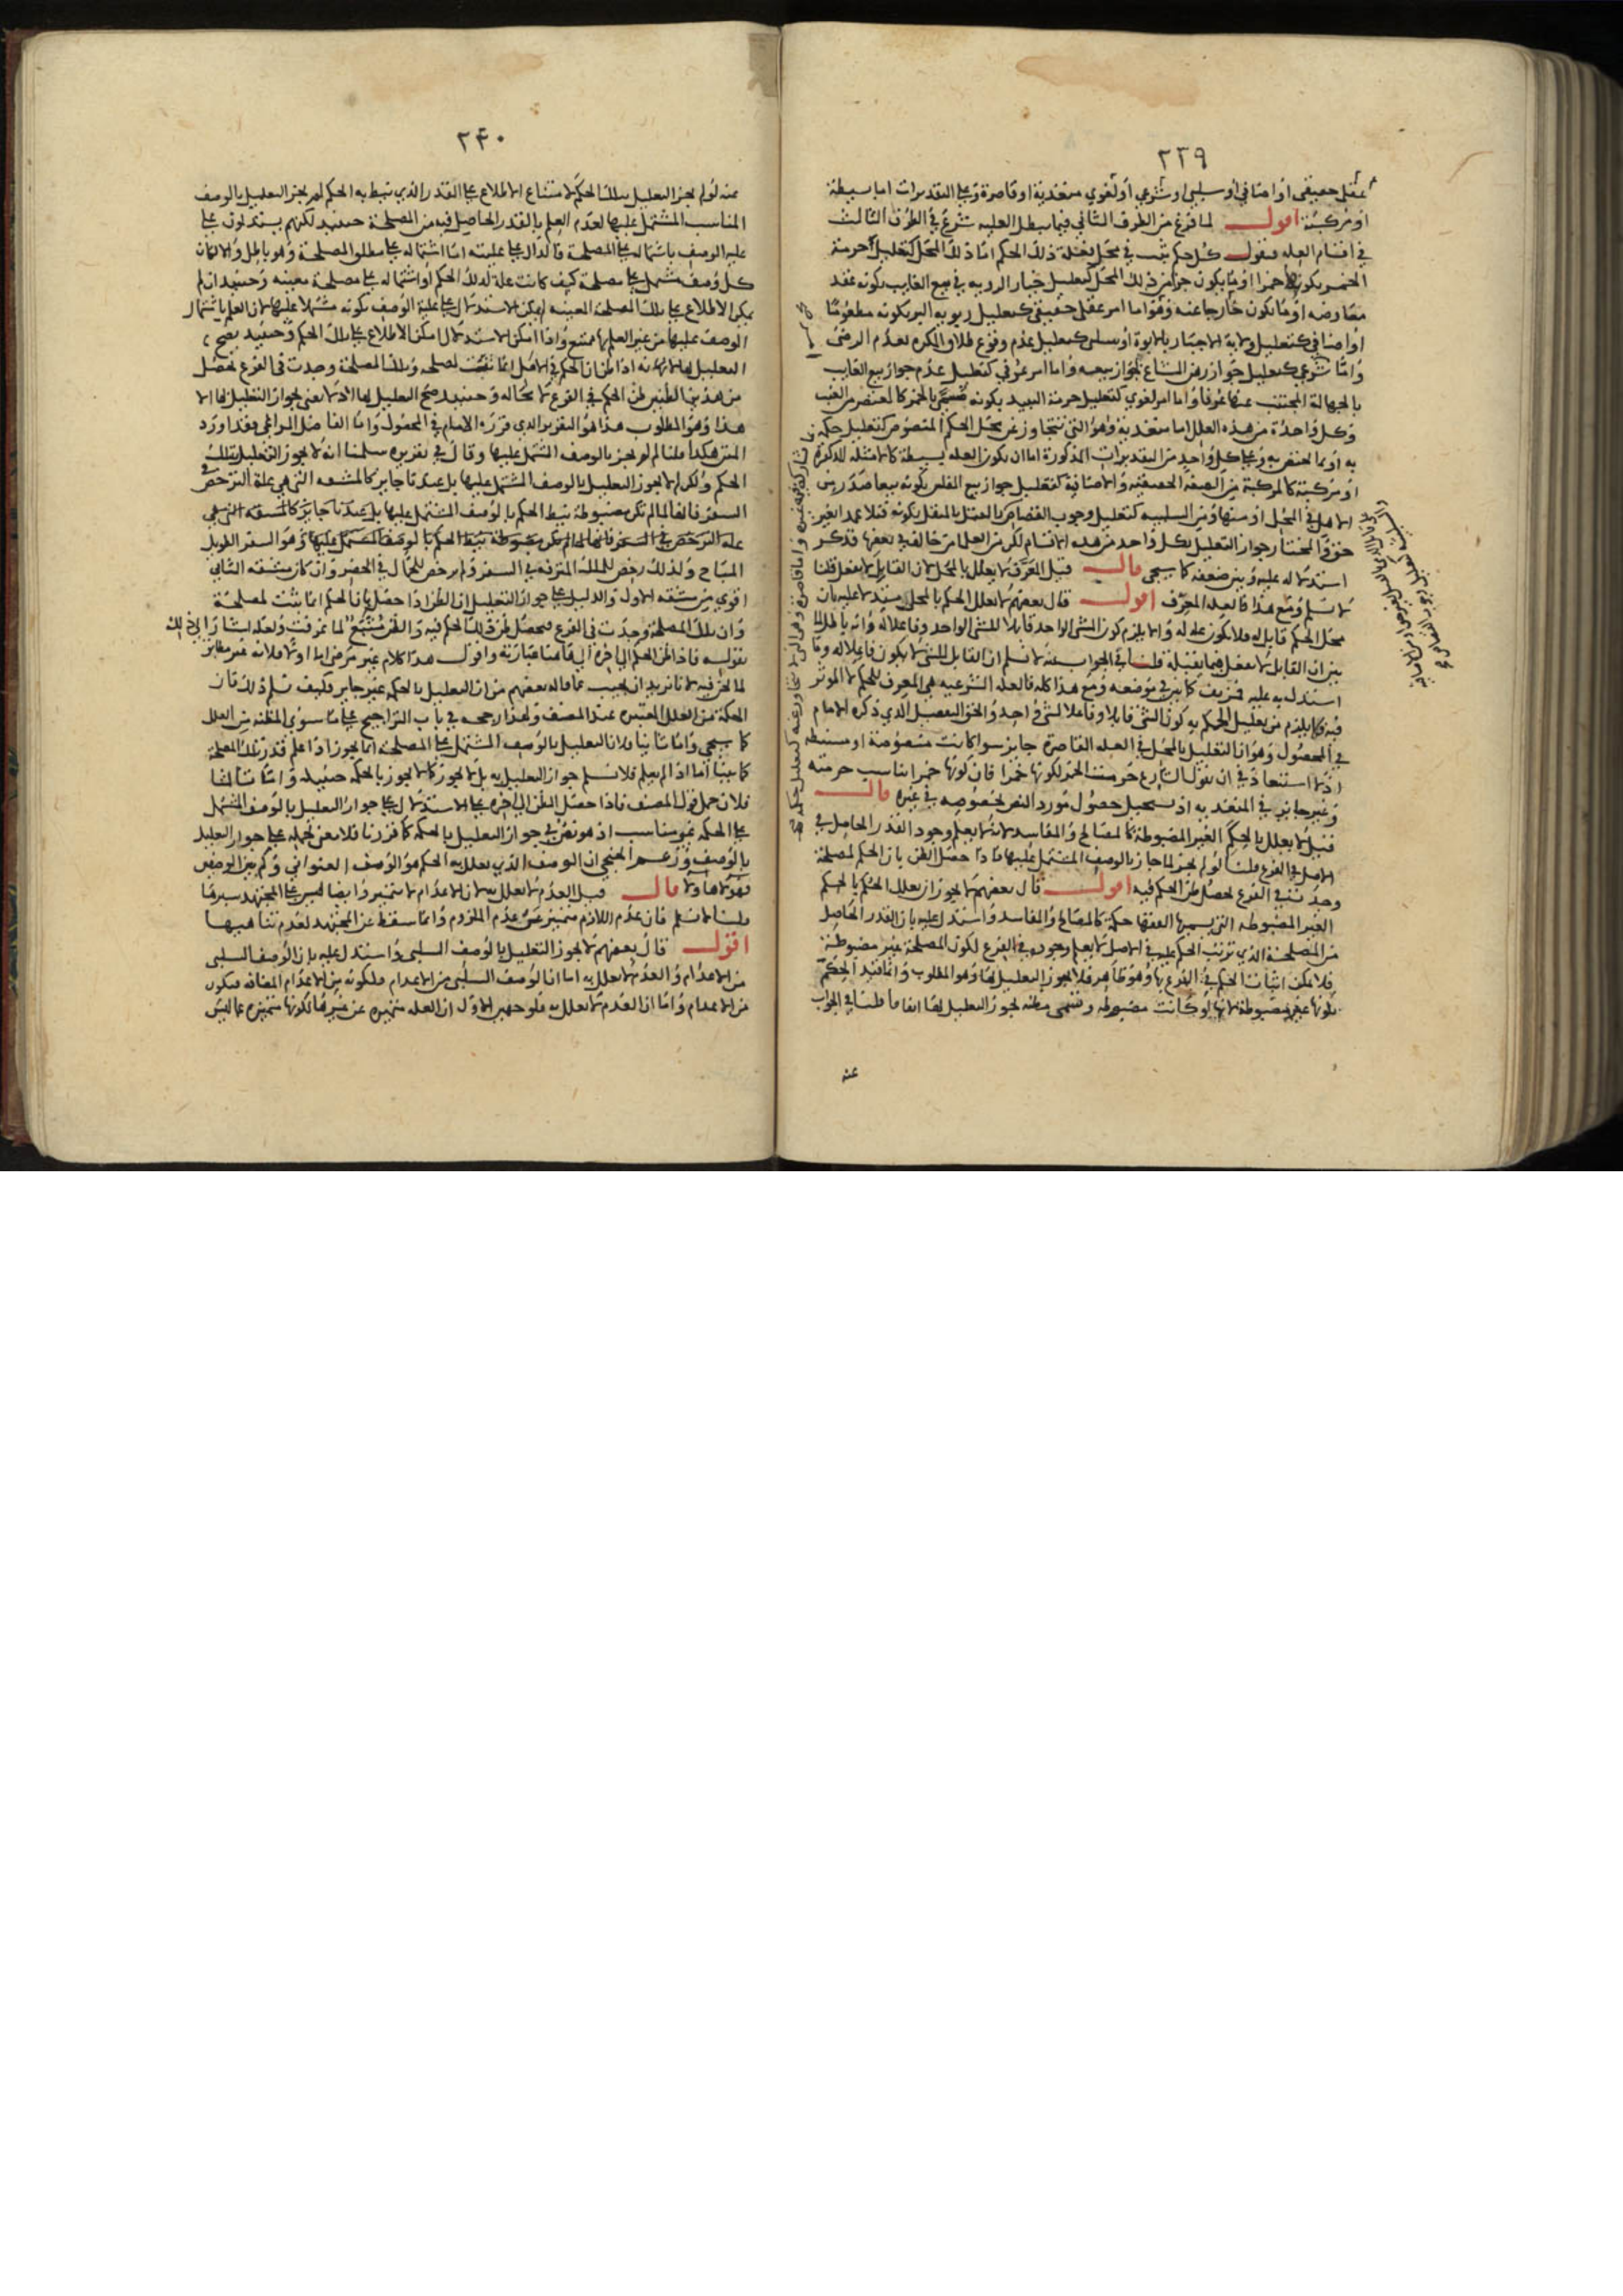 ٢٣٩
عقلي حقيقي او اضافي او سلبي او شرعي او لغوي متعدية او قاصرة وعلى التقديرات اما بسيطة
او مركبة اقول لما فرغ من الطرف الثاني فيما يبطل العلية شرع في الطرف الثالث
في اقسام العلة فنقول كل حكم ثبت في محل فعلة ذلك الحكم اما ذلك المحل كتعليل حرمة
الخمر بكونه خمرا او ما يكون جزأ من ذلك المحل كتعليل خيار الرؤية في بيع الغايب بكونه عقد
معاوضة او ما يكون خارجا عنه وهو اما امر عقلي حقيقي كتعليل ربوية البر بكونه مطعوما
او اضافي كتعليل ولاية الاجبار بالابوة او سلبي كتعليل عدم وقوع طلاق المكره لعدم الرضى
واما شرعي كتعليل جواز رهن المشاع بجواز بيعه واما امر عرفي كتعليل عدم جواز بيع الغايب
بالجهالة المجتنب عنها عرفا واما امر لغوي كتعليل حرمة النبيذ بكونه مسمى بالخمر كالمعتصر من العنب
وكل واحدة من هذه العلل اما متعدية وهو التي تتجاوز عن محل الحكم المنصوص كتعليل حكمه
به او بما يختص به وعلى كل واحد من التقديرات المذكورة اما ان يكون العلة بسيطة كالامثلة المذكورة
او مركبة كالمركبة من الصفة الحقيقية والاضافية كتعليل جواز بيع الفلس بكونه بيعا صدر من
الاهل في المحل او منها ومن السلبية كتعليل وجوب القصاص بالقتل بالمثقل بكونه قتلا عمدا بغير
حق والمختار جواز التعليل بكل واحد من هذه الاقسام لكن من العلما من خالف في بعضها فذكر
استدلاله عليه وبين ضعفه كما سيجي قال قيل المعرف لا يعلل بالمحل لان القابل لا يفعل قلنا
لا نسلم ومع هذا فالعلة المعرف اقول قال بعضهم لا يعلل الحكم بالمحل مستدلا عليه بان
محل الحكم قابل له فلا يكون علة له والا يلزم كون الشي الواحد قابلا للشي الواحد وفاعلا له وانه باطل لما
بين ان القابل لا يفعل فيما يقبله قلنا في الجواب عنه لا نسلم ان القابل للشي لا يكون فاعلا له وما
استدل به عليه فمزيف كما بين في موضعه ومع هذا كله فالعلة الشرعية هي المعرف للحكم لا الموثر
فيه فلا يلزم من تعليل الحكم به كون الشي قابلا وفاعلا لشي واحد والحق التفصيل الذي ذكره الامام
في المحصول وهو ان التعليل بالمحل في العلة القاصرة جايز سوا كانت منصوصة او مستنبطة
اذ لا استبعاد في ان يقول الشارع حرمت الخمر لكونها خمرا فان كونها خمرا يناسب حرمته
وغير جايز في المتعدية اذ يستحيل حصول مورد النص بخصوصه في غيره قال
قيل لا يعلل بالحكم الغير المضبوطة كالمصالح والمفاسد لانه لا يعلم وجود القدر الحاصل في
الاصل في الفرع قلنا لو لم يجز لما جاز بالوصف المشتمل عليها فاذا حصل الظن بان الحكم لمصلحة
وجدت في الفرع لحصل ظن الحكم فيه اقول قال بعضهم لا يجوز ان يعلل الحكم بالحكم
الغير المضبوطه التي يسميها الفقها حكمة كالمصالح والمفاسد واستدل عليه بان القدر الحاصل
من المصلحة الذي ترتب الحكم عليه في الاصل لا يعلم وجوده في الفرع لكون المصلحة غير مضبوطة
فلا يمكن اثبات الحكم في الفرع بها وهو ظاهر فلا يجوز التعليل بها وهو المطلوب وانما قيد الحكم
بكونها غير مضبوطة لانها لو كانت مضبوطه وتسمى مظنه لجوز التعليل بها اتفاقا قلنا في الجواب
عنه
٢٤٠
عنه لو لم يجز التعليل بتلك الحكم لامتناع الاطلاع على القدر الذي نيط به الحكم لم يجز التعليل بالوصف
المناسب المشتمل عليها لعدم العلم بالقدر الحاصل فيه من المصلحة حينئذ لكنهم يستدلون على
علية الوصف باشتماله على المصلحة فالدال على عليته اما اشتماله على مطلق المصلحة وهو باطل والا لكان
كل وصف مشتمل على مصلحة كيف كانت علة لذلك الحكم او اشتماله على مصلحة معينه وحينئذ ان لم
يمكن الاطلاع على تلك المصلحة المعينه لم يمكن الاستدلال على علية الوصف بكونه مشتملا عليها لان العلم باشتمال
الوصف عليها من غير العلم بها ممتنع واذا امكن الاستدلال امكن الاطلاع على تلك الحكم وحينئذ يصح
التعليل بها لانه اذا ظن ان الحكم في الاصل انما ثبت لمصلحه وتلك المصلحة وجدت في الفرع يحصل
من هذين الظنين ظن الحكم في الفرع لا محاله وحينئذ صح التعليل بها اذ لا معنى لجواز التعليل بها الا
هذا وهو المطلوب هذا هو التقرير الذي قرره الامام في المحصول واما الفاضل المراغي فقد اورد
المتن هكذا قلنا لو لم يجز بالوصف المشتمل عليها وقال في تقريره سلمنا انه لا يجوز التعليل بتلك
الحكم ولكن لا يجوز التعليل بالوصف المشتمل عليها بل عندنا جايز كالمشقه التي هي علة الترخص في
السفر فانها لما لم تكن مضبوطة نيط الحكم بالوصف المشتمل عليها بل عندنا جايز كالمشقه التي هي
علة الترخص في السفر فانها لما لم تكن مضبوطة نيط الحكم بالوصف المشتمل عليها وهو السفر الطويل
المباح ولذلك رخص للملك المترفه في السفر ولم يرخص للحمال في الحضر وان كان مشقه الثاني
اقوى من مشقه الاول والدليل على جواز التعليل ان الظن اذا حصل بان الحكم انما ثبت لمصلحة
وان تلك المصلحة وجدت في الفرع فيحصل ظن ذلك الحكم فيه والظن متبع لما عرفت ولعله اشار الى ذلك
بقوله فاذا ظن الحكم الى اخره الى هاهنا عبارته واقول هذا كلام غير مرضي اما اولا فلانه غير مطابق
لما نحن فيه لانا نريد ان نجيب عما قاله بعضهم من ان التعليل بالحكم غير جايز فكيف نسلم ذلك فان
الحكمة من العلل المعتبره عند المصنف ولهذا رجحه في باب التراجيح على ما سوى المظنه من العلل
كما سيجي واما ثانيا فلان التعليل بالوصف المشتمل على المصلحة انما يجوز اذا علم قدر تلك المصلحة
كما بينا اما اذا لم يعلم فلا نسلم جواز التعليل به بل لا يجوز كما لا يجوز بالحكمة حينئذ واما ثالثا
فلان حمل قول المصنف فاذا حصل الظن الى اخره على الاستدلال على جواز التعليل بالوصف المشتمل
على الحكمة غير مناسب اذ هو نص في جواز التعليل بالحكمة كما قررنا فلا معنى لحمله على جواز التعليل
بالوصف وزعم الخنجي ان الوصف الذي يعلل به الحكم هو الوصف العنواني ولم يميز الوصفين
قال قيل العدم لا يعلل به لان الاعدام لا تتميز وايضا ليس على المجتهد سبرها
قلنا لا نسلم فان عدم اللازم متميز عن عدم الملزوم وانما سقط عن المجتهد لعدم تناهيها
اقول قال بعضهم لا يجوز التعليل بالوصف السلبي واستدل عليه بان الوصف السلبي
من الاعدام والعدم لا يعلل به اما ان الوصف السلبي من الاعدام فلكونه من الاعدام المضافه فيكون
من الاعدام واما ان العدم لا يعلل به فلوجهين الاول ان العله متميزه عن غيرها لكونها متميزه عما ليس